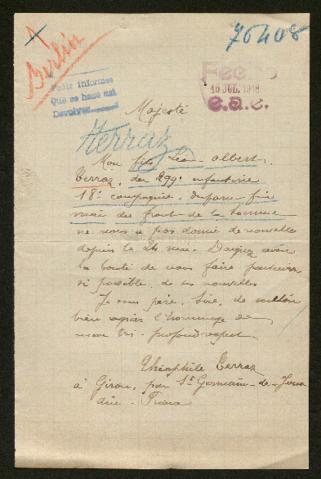 Berlin
76408
Pedir informes
Que se hace así
Devolver
Fec
10 JUL. 1918
C.a.C.
Majesté
Terraz
Mon fils Léon Albert
Terraz, du 299e infanterie
18e compagnie, disparu fin
mai du front de la Somme
ne nous a pas donné de nouvelles
depuis le 24 mai. Daignez avoir
la bonté de nous faire parvenir
si possible, de ses nouvelles
Je vous prie, Sire, de vouloir
bien agréer l'hommage de
mon très profond respect
Théophile Terraz
à Giron, par St Germain-de-Joux
Ain - France